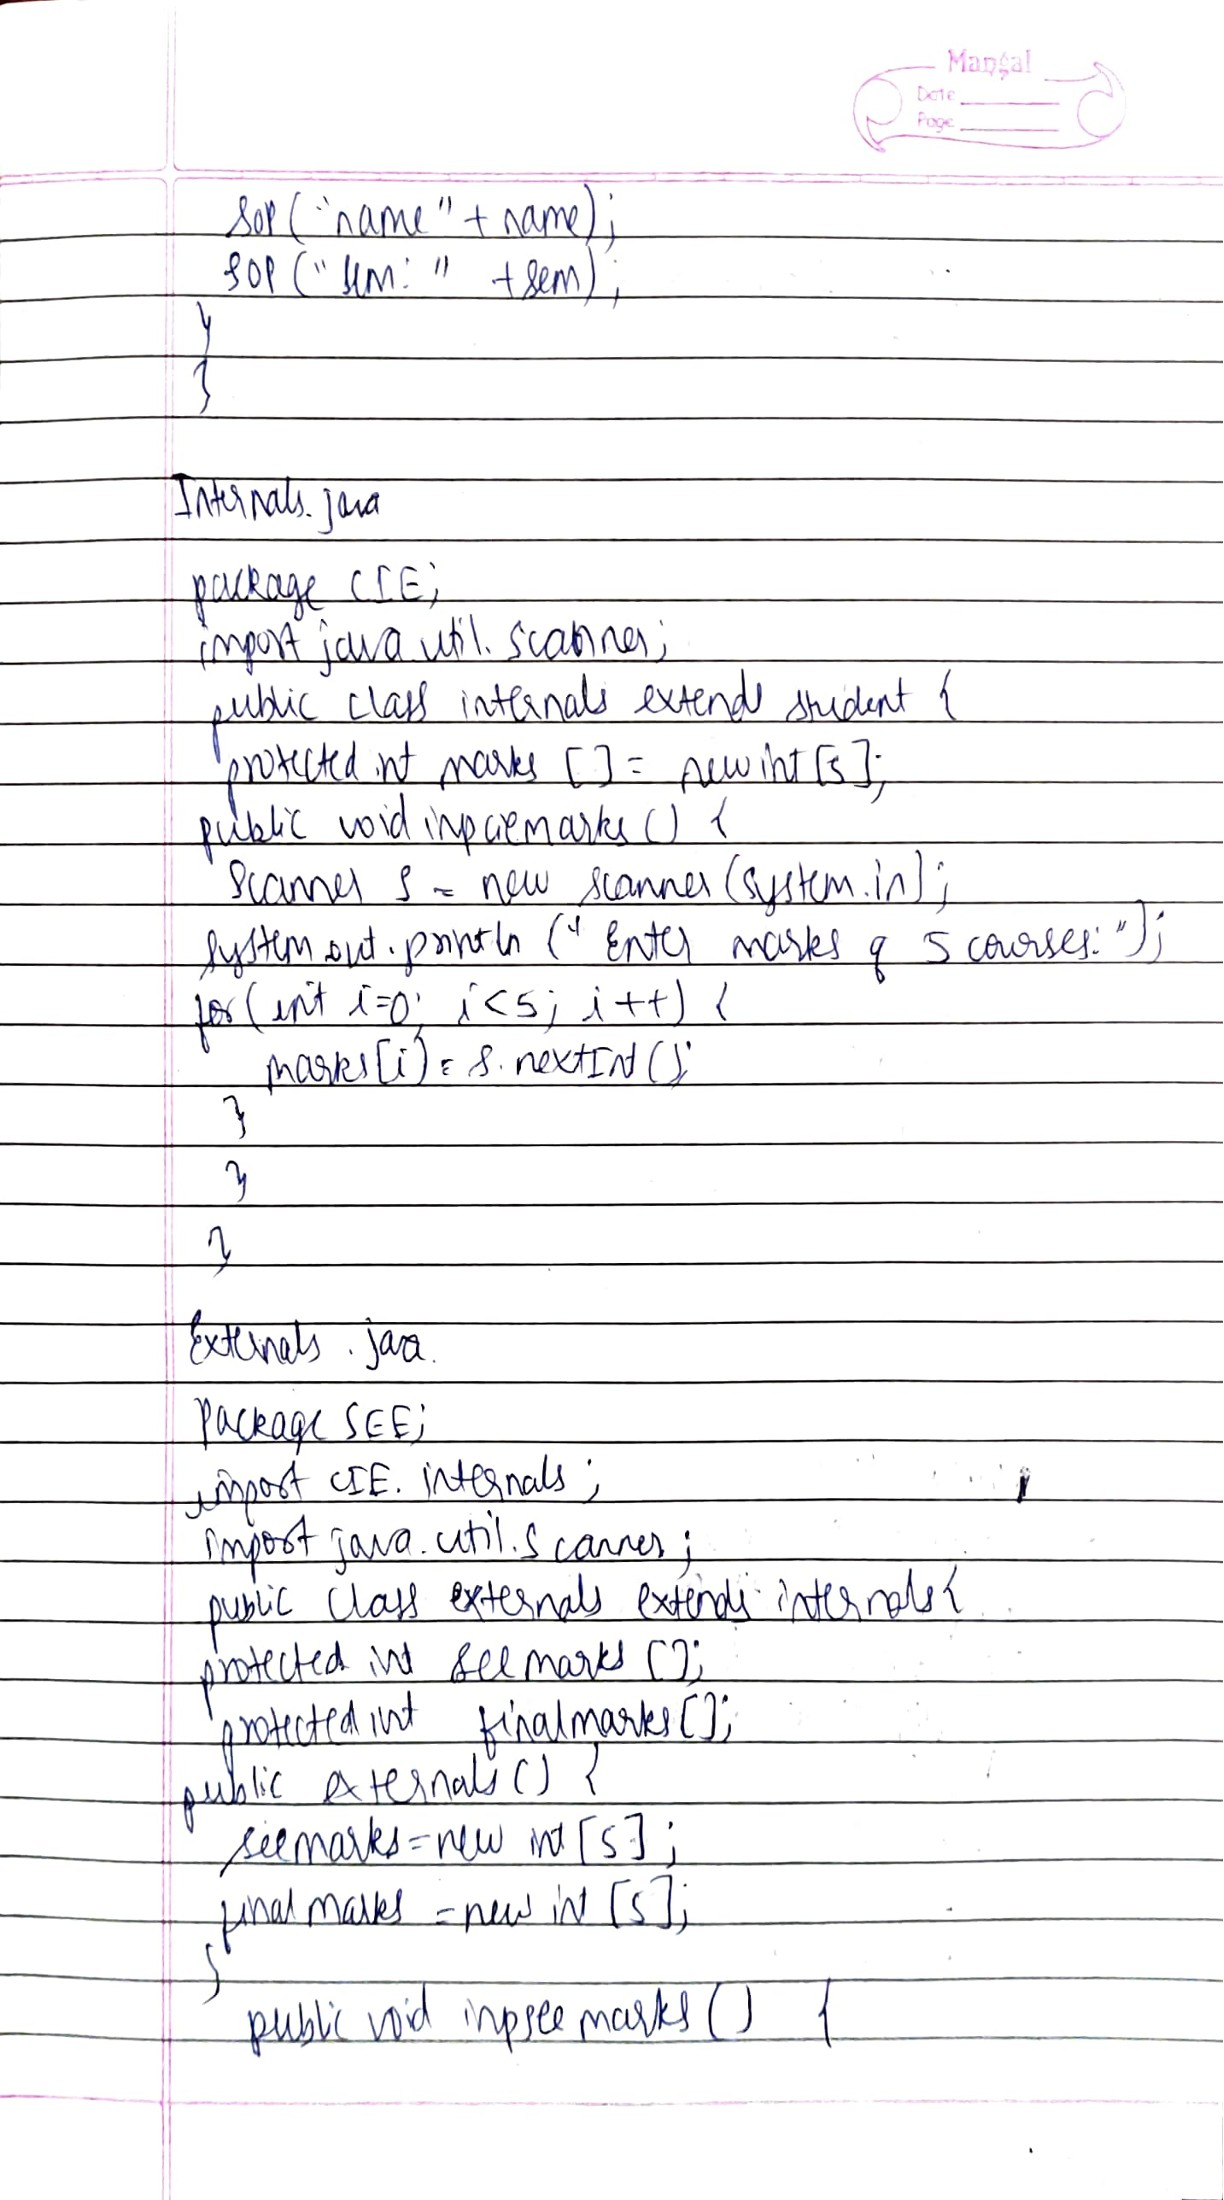 Mangal
Date
Page
SOP("name" + name);
SOP("sem: " + sem);
}
}
Internals.java
package CIE;
import java.util.scanner;
public class internals extends student {
protected int marks [] = new int[5];
public void inpciemarks() {
Scanner s = new scanner(system.in);
system.out.println ("Enter marks of 5 courses:");
for(int i=0; i<5; i++) {
marks[i] = s.nextInt();
}
}
}
Externals.java.
package SEE;
import CIE.internals;
import java.util.Scanner;
public class externals extends internals{
protected int seemarks [];
protected int finalmarks[];
public externals() {
seemarks = new int [5];
finalmarks = new int [5];
}
public void inpseemarks() {